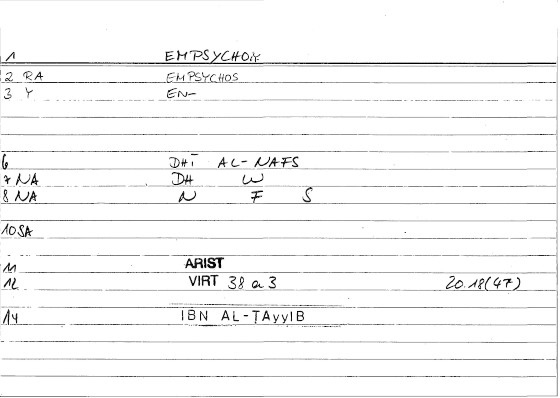 1 EMPSYCHOIY
2 RA EMPSYCHOS
3 Y EN-
6 DHĪ AL-NAFS
7 NA DH W
8 NA N F S
10 SA
11 ARIST
12 VIRT 38 a 3 20.18(47)
14 IBN AL-ṬAyyIB